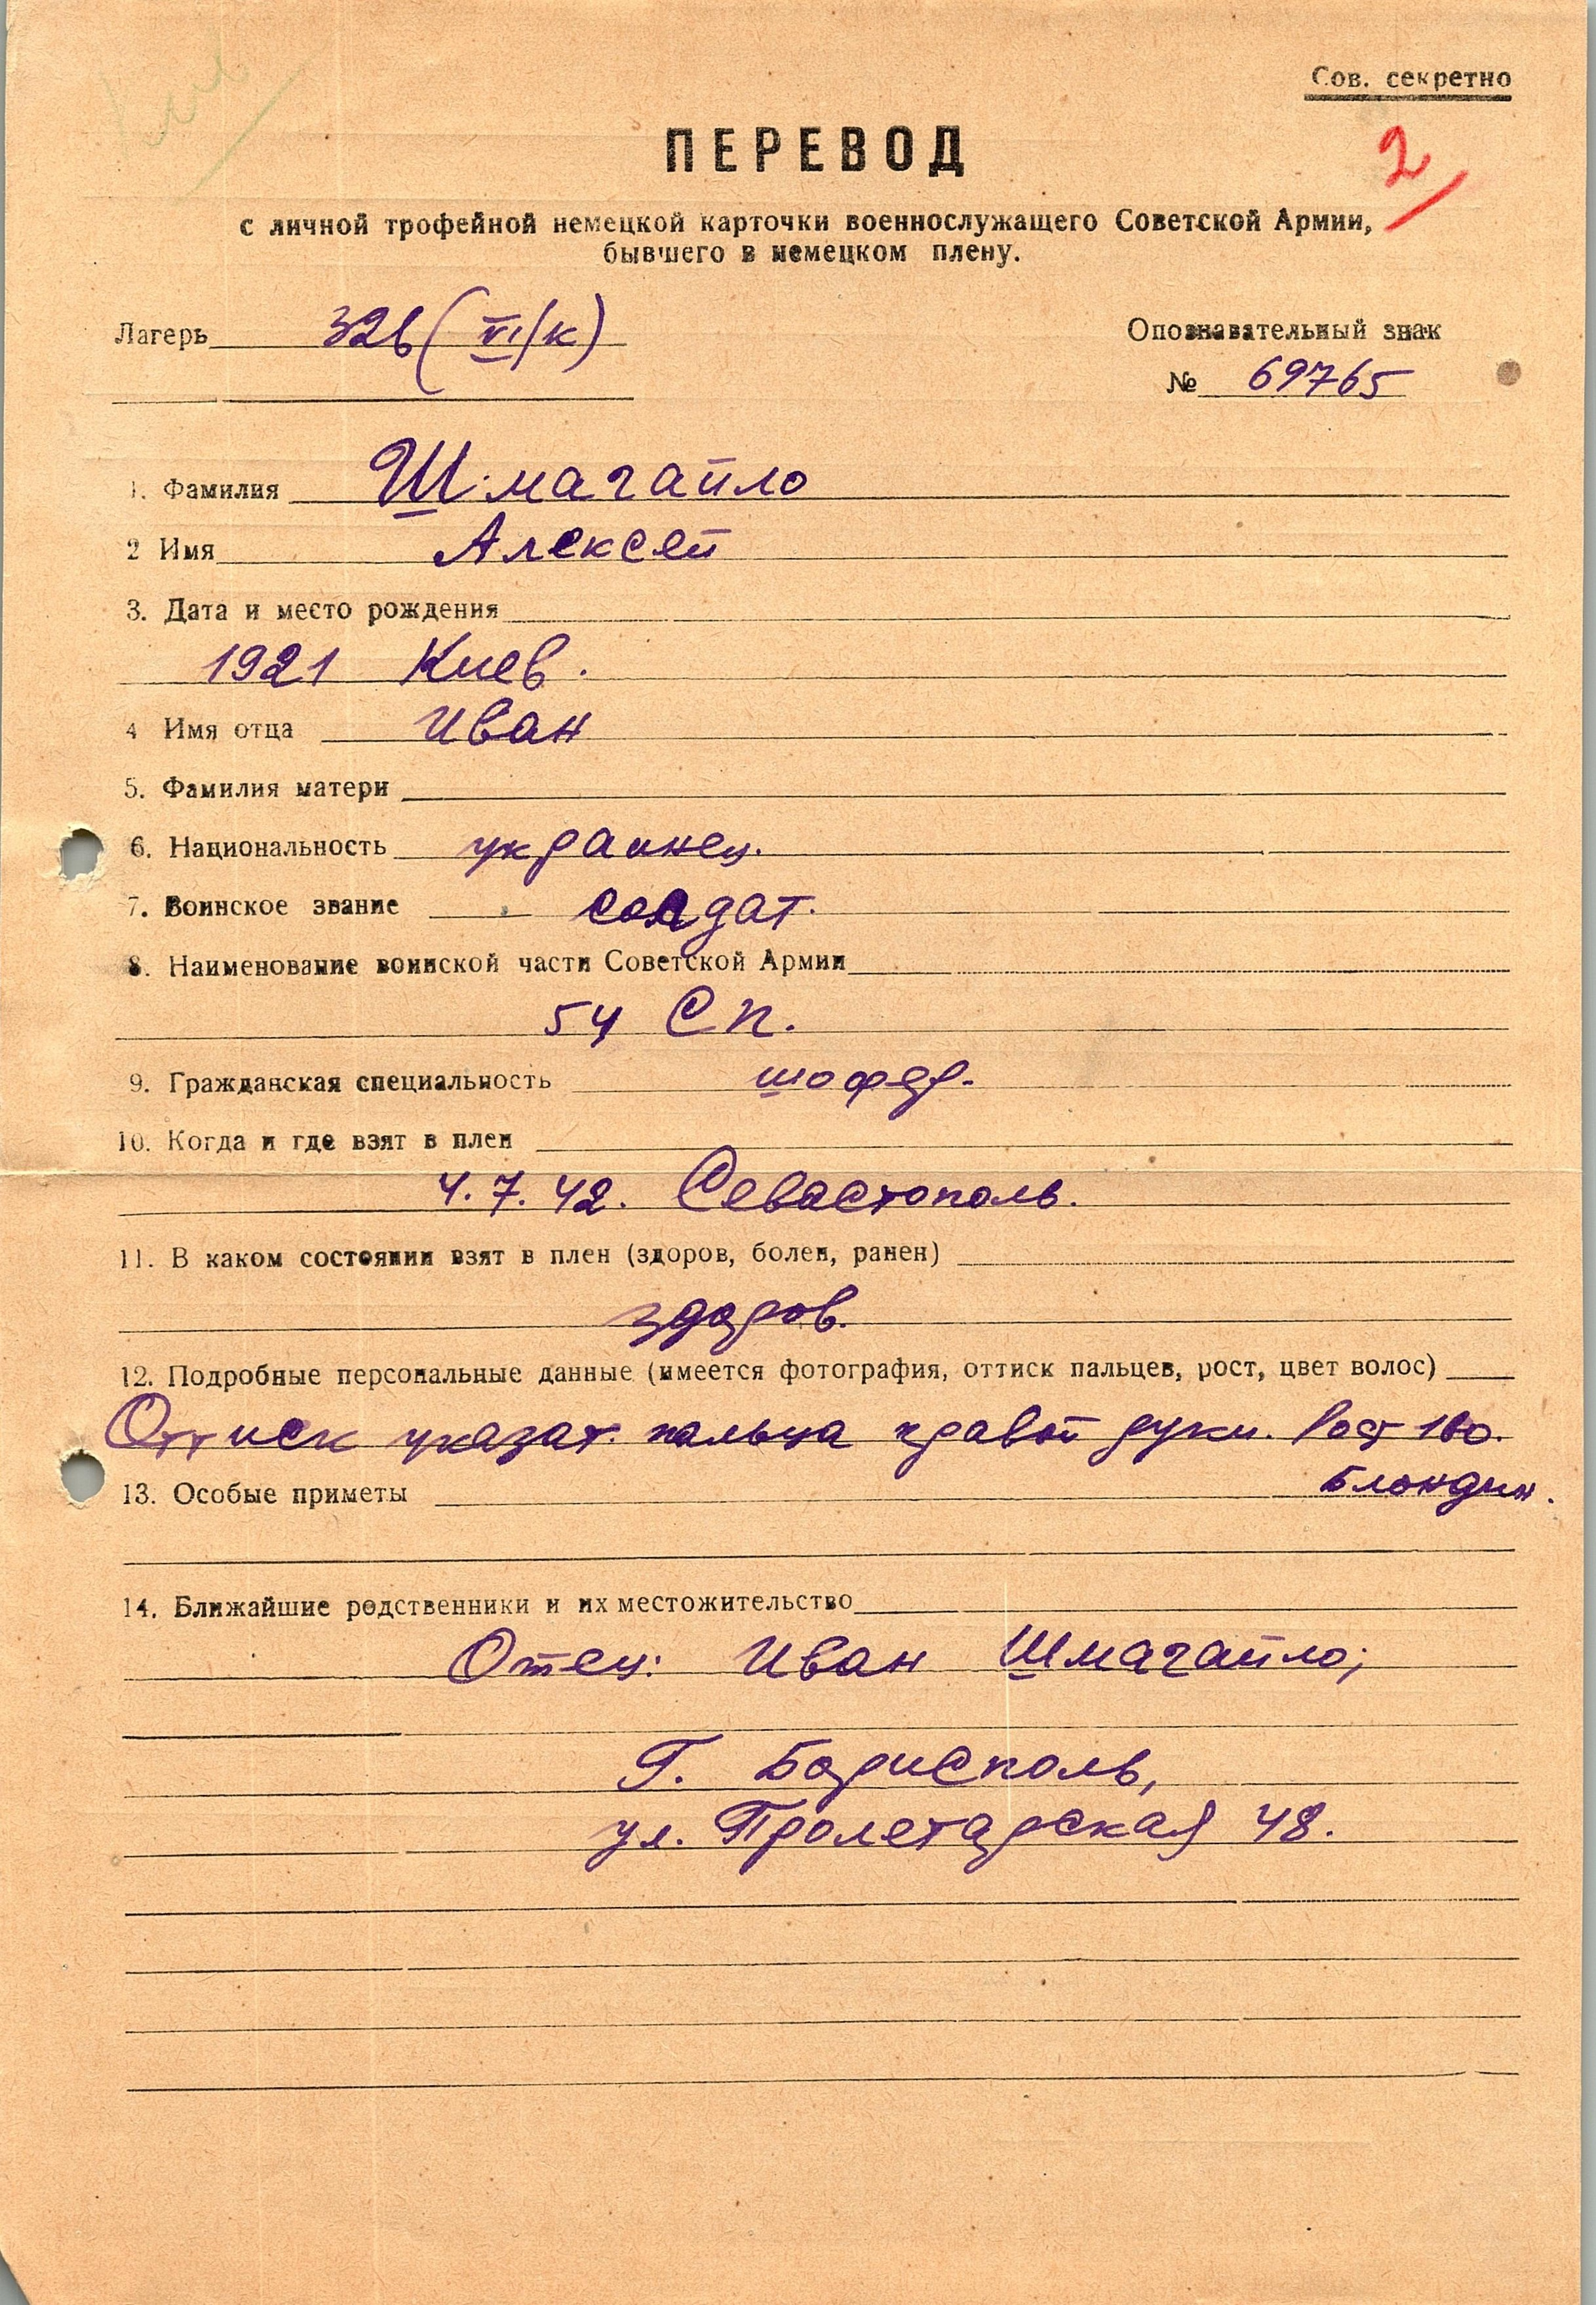 Сов. секретно
2
ПЕРЕВОД
с личной трофейной немецкой карточки военнослужащего Советской Армии,
бывшего в немецком плену.
Лагерь 326 (VI/к)
Опознавательный знак
№ 69765
1. Фамилия Шмагайло
2 Имя Алексей
3. Дата и место рождения
1921 Киев.
4 Имя отца Иван
5. Фамилия матери
6. Национальность украинец.
7. Воинское звание солдат.
8. Наименование воинской части Советской Армии
54 Сп.
9. Гражданская специальность шофер.
10. Когда и где взят в плен
4.7.42. Севастополь.
11. В каком состоянии взят в плен (здоров, болен, ранен)
здоров.
12. Подробные персональные данные (имеется фотография, оттиск пальцев, рост, цвет волос)
Оттиск указат. пальца правой руки. Рост 160.
Блондин.
13. Особые приметы
14. Ближайшие родственники и их местожительство
Отец: Иван Шмагайло;
Г. Борисполь,
ул. Пролетарская 48.